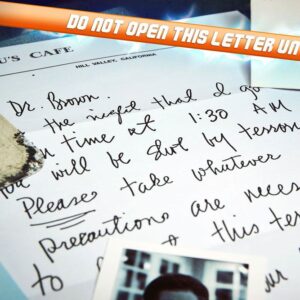 DO NOT OPEN THIS LETTER UN
U'S CAFE
HILL VALLEY, CALIFORNIA
Dr. Brown,
the night that I go
in time at 1:30 AM
you will be shot by terror
Please take whatever
precautions are neces
to this ter
ur